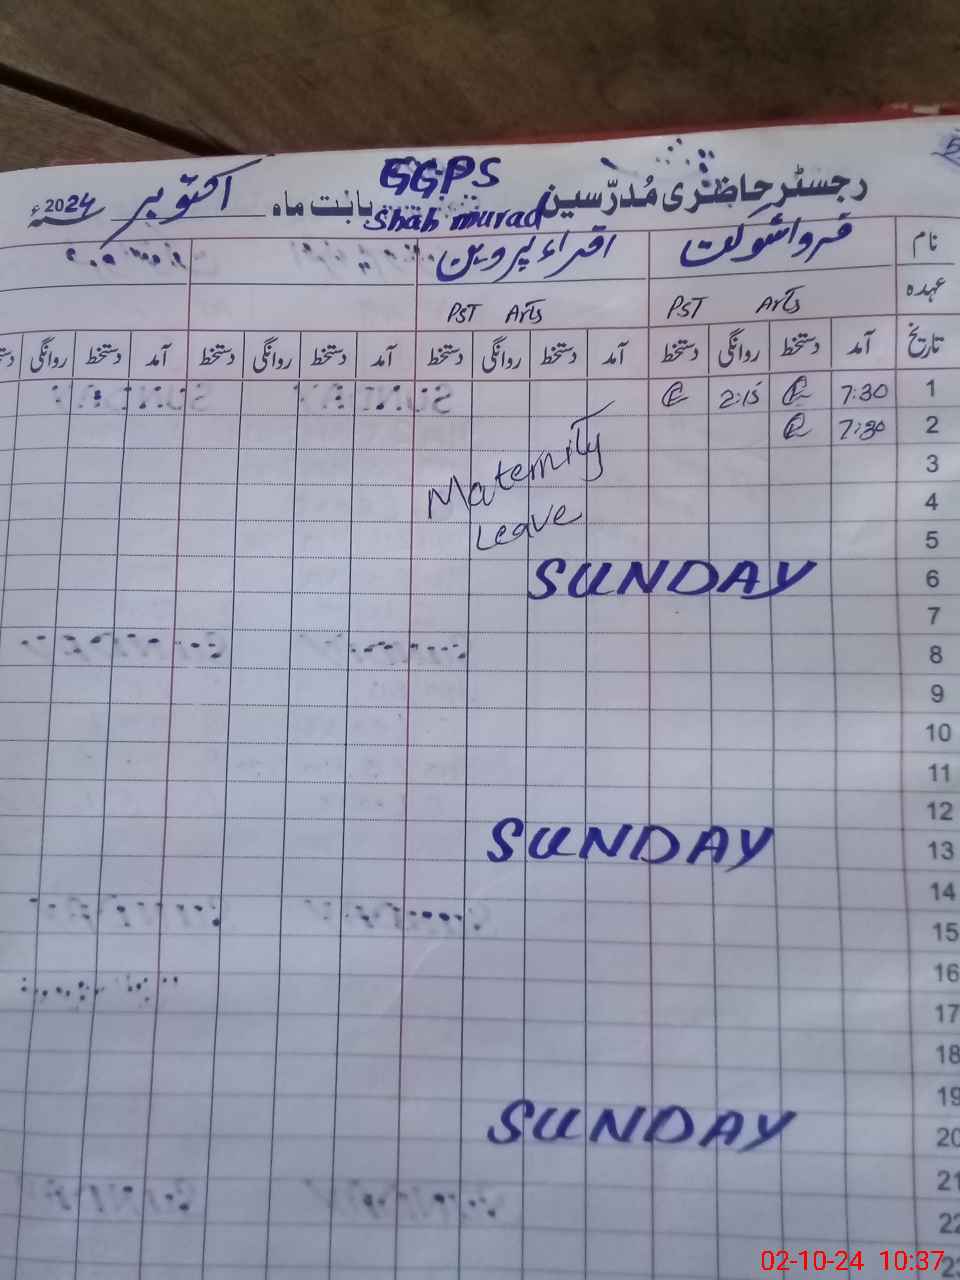 رجسٹر حاضری مُدرّسین GGPS Shah murad بابت ماہ اکتوبر 2024ء
نام فروا شوکت اقراء پروین
عہدہ PST Arts PST Arts
تاریخ آمد دستخط روانگی دستخط آمد دستخط روانگی دستخط آمد دستخط روانگی دستخط آمد دستخط روانگی
1 7:30 2:15
2 7:30
3 Maternity
4
5 Leave
6 SUNDAY
7
8
9
10
11
12
13 SUNDAY
14
15
16
17
18
19
20 SUNDAY
21
22
23
02-10-24 10:37